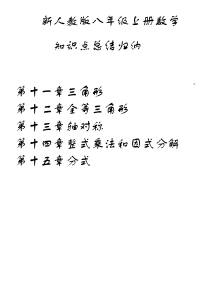 新人教版八年级上册数学
知识点总结归纳
第十一章三角形
第十二章全等三角形
第十三章轴对称
第十四章整式乘法和因式分解
第十五章分式